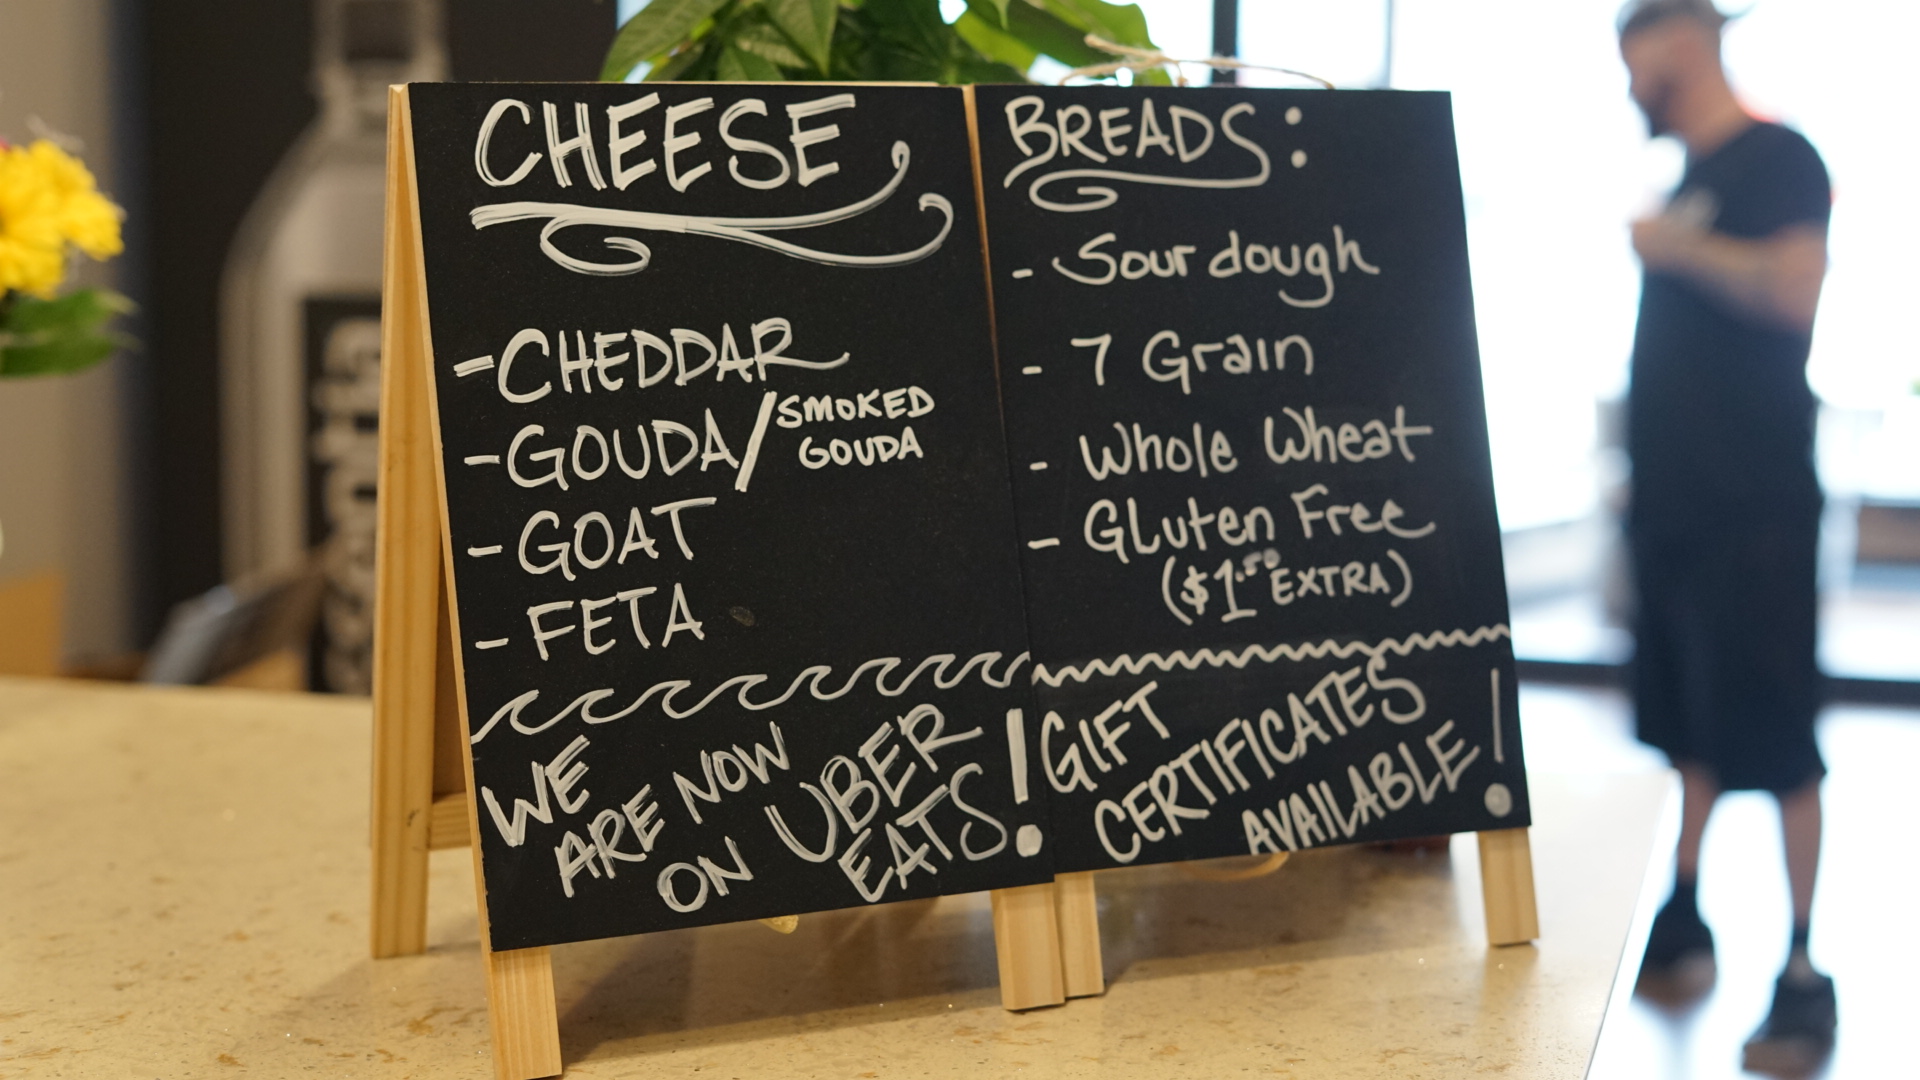 CHEESE
-CHEDDAR
-GOUDA/SMOKED
GOUDA
-GOAT
-FETA
WE
ARE NOW
ON UBER
EATS!
BREADS:
- Sourdough
- 7 Grain
- Whole Wheat
- Gluten Free
($1.50 EXTRA)
GIFT
CERTIFICATES
AVAILABLE!